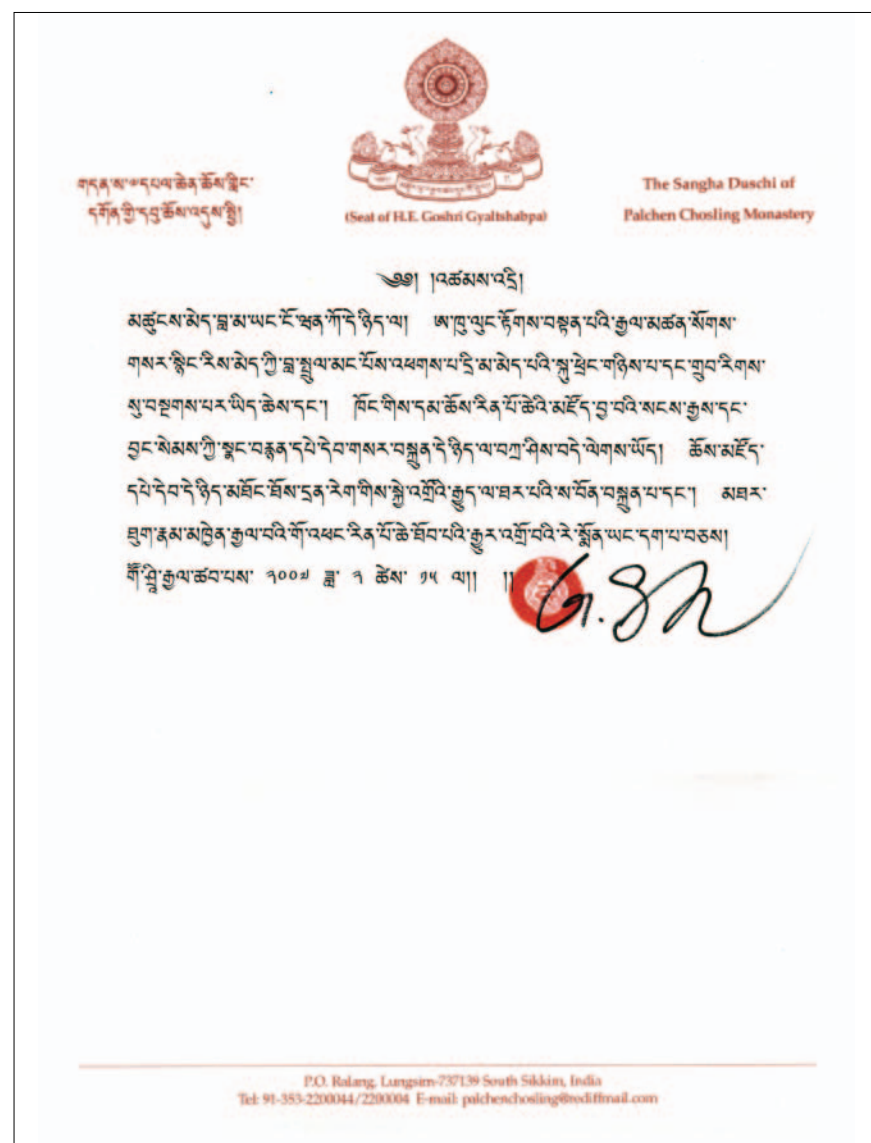 གདན་ས་༧དཔལ་ཆེན་ཆོས་གླིང་
དགོན་གྱི་དབུ་ཆོས་འདུས་སྤྱི།
(Seat of H.E. Goshri Gyaltshabpa)
The Sangha Duschi of
Palchen Chosling Monastery
༄༅། །འཚམས་འདྲི།
མཚུངས་མེད་བླ་མ་ཡང་ངོ་ཝན་ཀོ་དེ་ཉིད་ལ། ཨ་ཁུ་ལུང་རྟོགས་བསྟན་པའི་རྒྱལ་མཚན་སོགས་
གསར་སྙིང་རིས་མེད་ཀྱི་བླ་སྤྲུལ་མང་པོས་འཕགས་པ་དྲི་མ་མེད་པའི་སྐུ་ཕྲེང་གཉིས་པ་དང་གྲུབ་རིགས་
སུ་བསྔགས་པར་ཡིད་ཆེས་དང་། ཁོང་གིས་དམ་ཆོས་རིན་པོ་ཆེའི་མཛོད་བྱ་བའི་སངས་རྒྱས་དང་
བྱང་སེམས་ཀྱི་སྣང་བརྙན་དཔེ་དེབ་གསར་བསྐྲུན་དེ་ཉིད་ལ་བཀྲ་ཤིས་བདེ་ལེགས་ཡོད། ཆོས་མཛོད་
དཔེ་དེབ་དེ་ཉིད་མཐོང་ཐོས་དྲན་རེག་གིས་སྐྱེ་འགྲོའི་རྒྱུད་ལ་ཐར་པའི་ས་བོན་བསྐྲུན་པ་དང་། མཐར་
ཐུག་རྣམ་མཁྱེན་རྒྱལ་བའི་གོ་འཕང་རིན་པོ་ཆེ་ཐོབ་པའི་རྒྱུར་འགྲོ་བའི་རེ་སྨོན་ཡང་དག་པ་བཅས།
གོ་ཤྲཱི་རྒྱལ་ཚབ་པས་ ༢༠༠༧ ཟླ་ ༢ ཚེས་ ༡༥ ལ།། །།
P.O. Ralang, Lungsim-737139 South Sikkim, India
Tel: 91-353-2200044/2200004 E-mail: palchenchosling@rediffmail.com